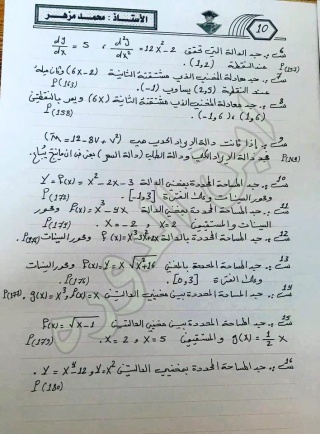 الأستاذ: محمد مزهر
10
س6: جد الدالة التي تحقق d²y/dx² = 12X² - 2 ، dy/dx = 5
عند النقطة (1,2) .
س7: جد معادلة المنحني الذي مشتقته الثانية (6X-2) وكان ميله
عند النقطة (2,5) يساوي (-1) . P(163)
س8: جد معادلة المنحني الذي مشتقته الثانية (6X) ويمر بالنقطتين
(1,6) ، (-1,6) . P(158)
س9: إذا كانت دالة الإيراد الحدي هي (M = 12 - 8V + V²)
جد دالة الإيراد الكلي ودالة الطلب (دالة السعر)
س10: جد المساحة المحددة بمنحني الدالة Y = P(X) = X² - 2X - 3
ومحور السينات وذلك الفترة [-1,3] . P(172)
س11: جد المساحة المحددة بمنحني الدالة P(X) = X³ - 4X ومحور
السينات والمستقيمين X = 2 ، X = -2 .
س12: جد المساحة المحددة بالدالة ومحور السينات
س13: جد المساحة المحددة بالمنحني P(X) = X√X²+16 ومحور السينات
وذلك الفترة [0,3] . P(176)
س14: جد المساحة المحددة بين منحني الدالتين g(X) = X³ , P(X) = X .
س15: جد المساحة المحددة بين منحني الدالتين P(X) = √X-1
g(X) = 1/2 X والمستقيمين X = 2 ، X = 5 . P(179)
س16: جد المساحة المحددة بمنحني الدالتين Y = X⁴ - 12 و Y = X² .
P(180)